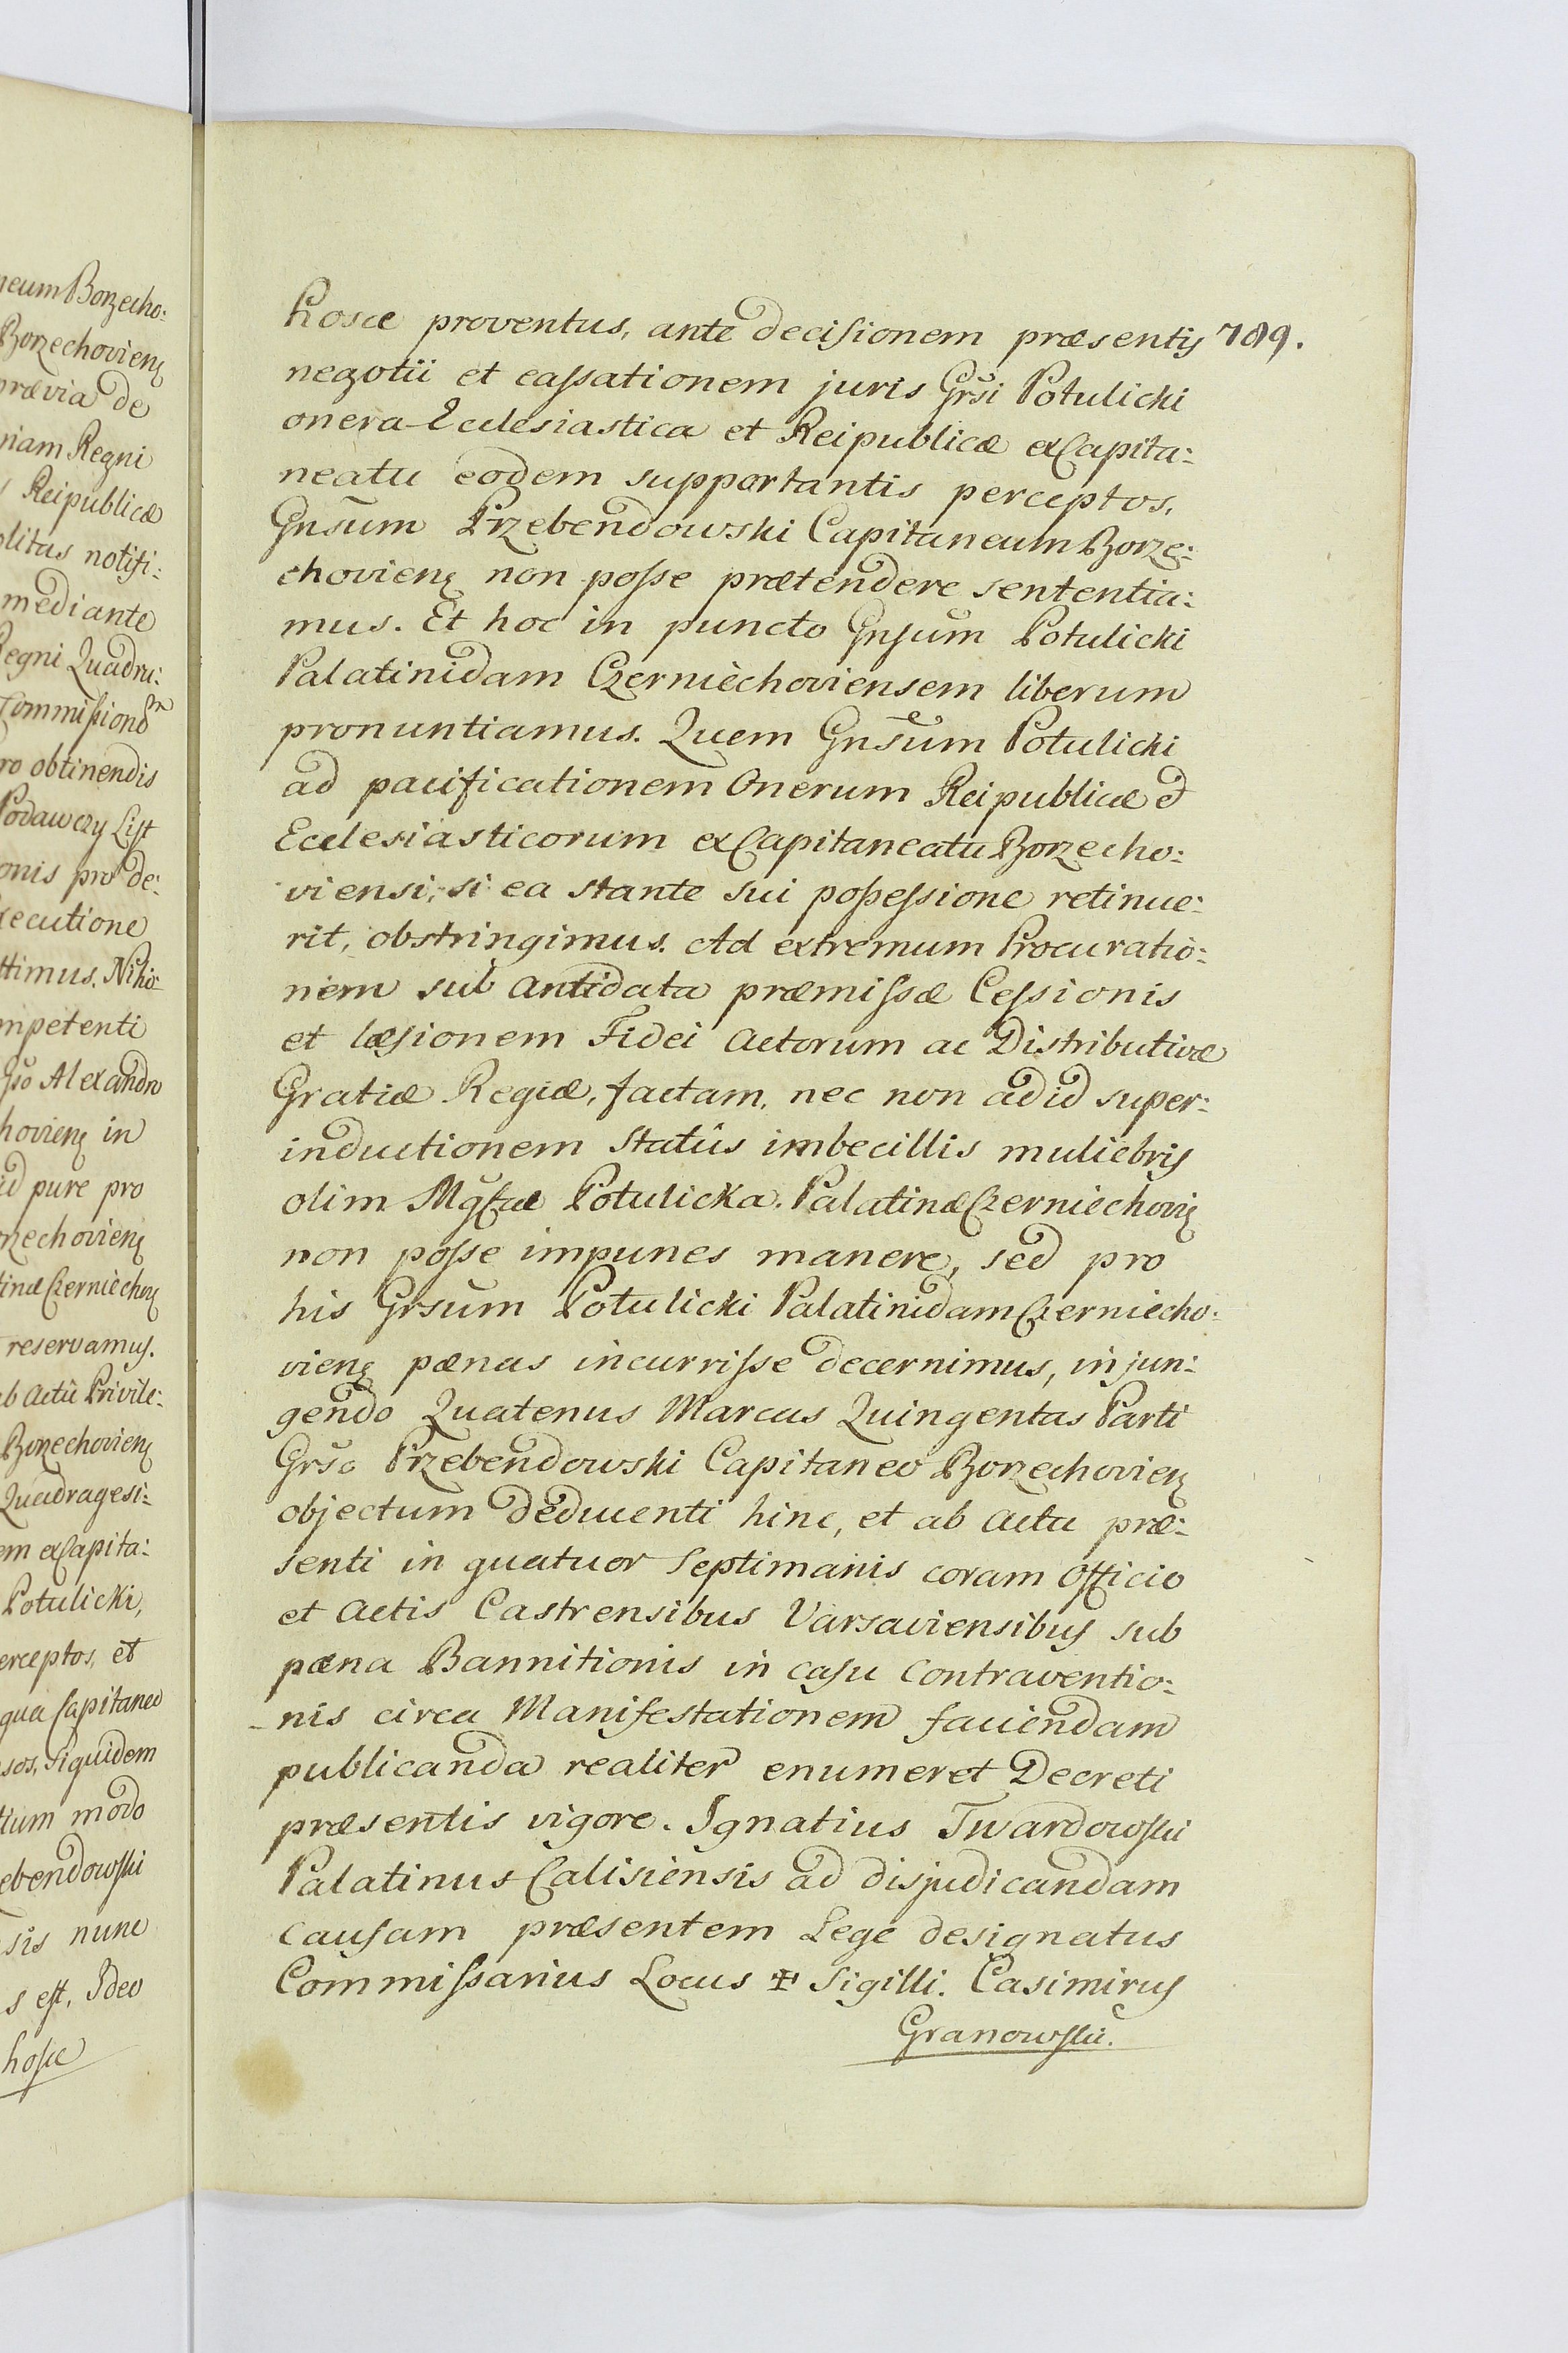 neum Borzecho:
Borzechovien
prævia de
niam Regni
Reipublicæ
olitas notifi:
mediante
Regni Quadru:
Commissiond
ro obtinendis
Podawczy List
onis pro de:
xecutione
ttimus. Niho
mpetenti
Gso Alexandro
hovien in
id pure pro
rzechovien
tinæ Czerniechov
reservamus.
ab actu Privile:
Borzechovien
Quadragesi:
em ex Capita:
Potulicki,
erceptos, et
qua Capitaneo
sos, siquidem
tium modo
ebendowski
sis nunc
s est, Ideo
hosce
hosce proventus, ante decisionem præsentis 789.
negotii et cassationem juris Grsi Potulicki
onera Ecclesiastica et Reipublicæ ex Capita:
neatu eodem supportantis perceptos,
Gnsum Przebendowski Capitaneum Borze:
chovien non posse prætendere sententia:
mus. Et hoc in puncto Gnsum Potulicki
Palatinidam Czerniechoviensem liberum
pronuntiamus. Quem Gnsum Potulicki
ad pacificationem Onerum Reipublicæ et
Ecclesiasticorum ex Capitaneatu Borzecho:
viensi, si ea stante sui possessione retinue:
rit, obstringimus. Ad extremum Procuratio:
nem sub antidata præmissæ Cessionis
et læsionem Fidei Actorum ac Distributivæ
Gratiæ Regiæ, factam, nec non ad id super:
inductionem statûs imbecillis muliebris
olim Mgfcæ Potulicka. Palatinæ Czerniechovi
non posse impunes manere, sed pro
his Grsum Potulicki Palatinidam Czerniecho:
vien pœnas incurrisse decernimus, injun:
gendo Quatenus Marcas Quingentas Parti
Grso Przebendowski Capitaneo Borzechovien
objectum deducenti hinc, et ab actu præ:
senti in quatuor Septimanis coram Officio
et Actis Castrensibus Varsaviensibus sub
pœna Bannitionis in casu contraventio:
nis circa Manifestationem faciendam
publicanda realiter enumeret Decreti
præsentis vigore. Ignatius Twardowski
Palatinus Calisiensis ad disjudicandam
Causam præsentem Lege designatus
Commissarius Locus ✠ Sigilli. Casimirus
Granowski.